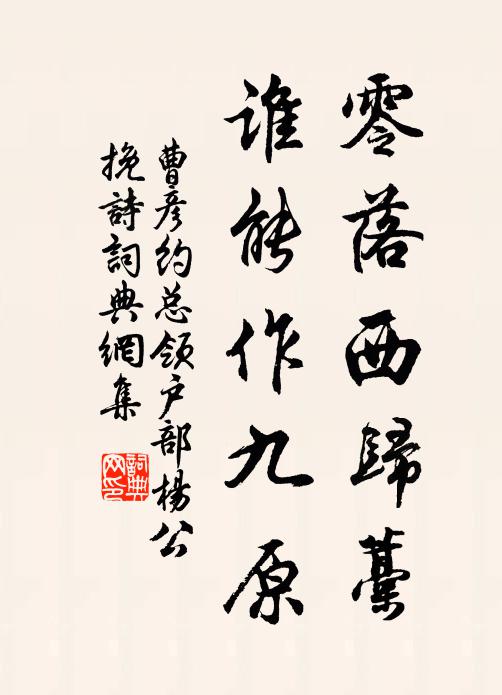 零落西歸藁
誰能作九原
曹彦约总领户部楊公
挽詩詞典網集
詞典网印